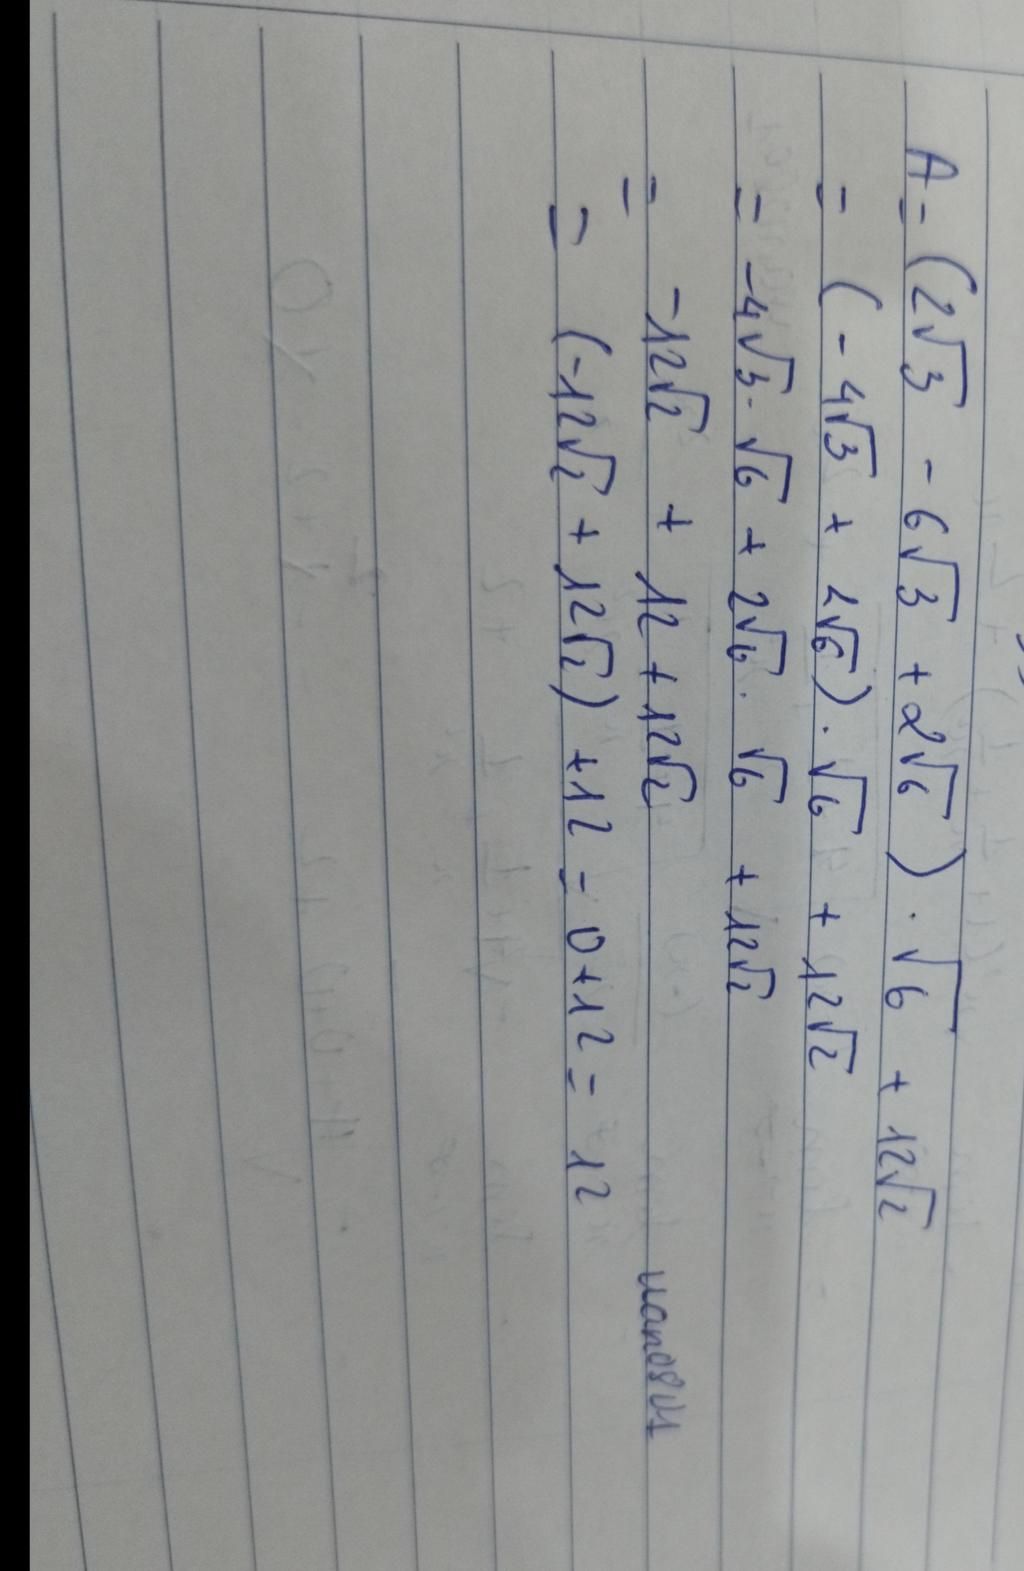 A = (2√3 - 6√3 + 2√6) . √6 + 12√2
= (-4√3 + 2√6) . √6 + 12√2
= -4√3 . √6 + 2√6 . √6 + 12√2
= -12√2 + 12 + 12√2
= (-12√2 + 12√2) + 12 = 0 + 12 = 12